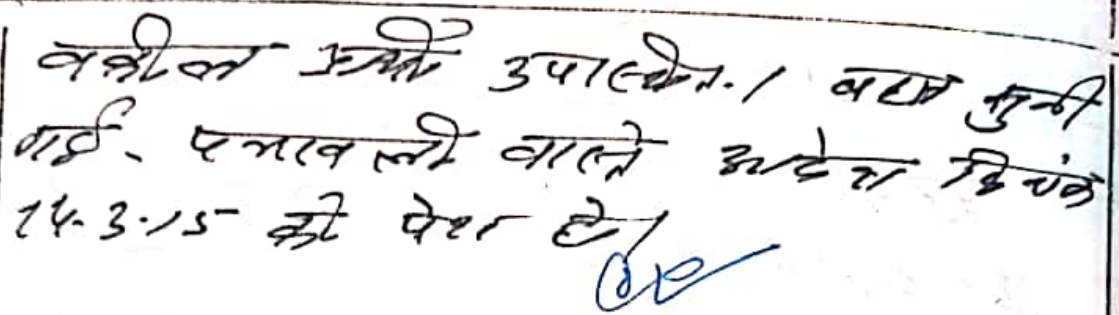 वकील उपस्थित। बहस सुनी
गई. पत्रावली वास्ते आदेश दिनांक
14.3.15 को पेश हो।